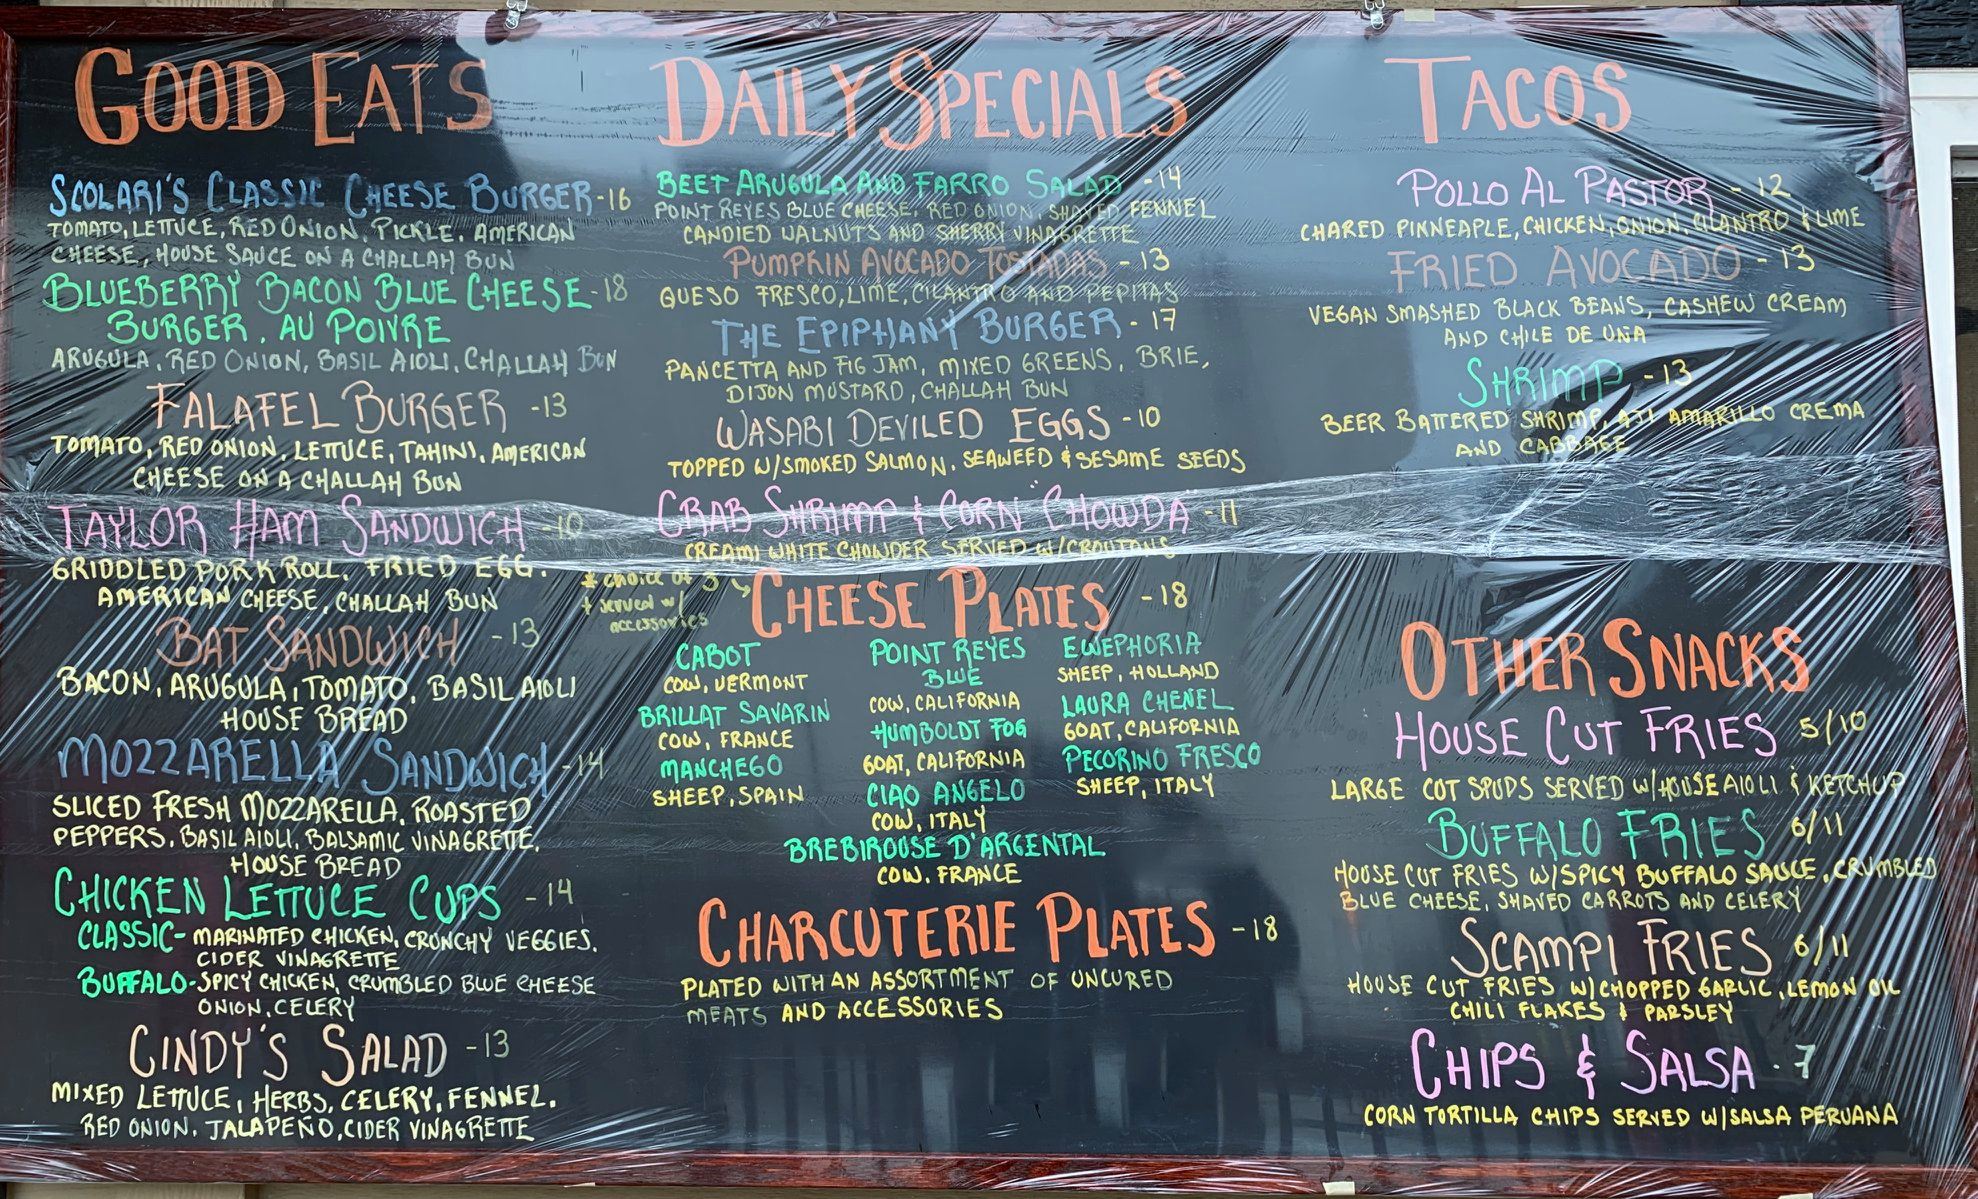 GOOD EATS
SCOLARI'S CLASSIC CHEESE BURGER - 16
TOMATO, LETTUCE, RED ONION, PICKLE, AMERICAN
CHEESE, HOUSE SAUCE ON A CHALLAH BUN
BLUEBERRY BACON BLUE CHEESE - 18
BURGER, AU POIVRE
ARUGULA, RED ONION, BASIL AIOLI, CHALLAH BUN
FALAFEL BURGER - 13
TOMATO, RED ONION, LETTUCE, TAHINI, AMERICAN
CHEESE ON A CHALLAH BUN
TAYLOR HAM SANDWICH - 10
GRIDDLED PORK ROLL, FRIED EGG,
AMERICAN CHEESE, CHALLAH BUN
BAT SANDWICH - 13
BACON, ARUGULA, TOMATO, BASIL AIOLI
HOUSE BREAD
MOZZARELLA SANDWICH - 14
SLICED FRESH MOZZARELLA, ROASTED
PEPPERS, BASIL AIOLI, BALSAMIC VINAGRETTE,
HOUSE BREAD
CHICKEN LETTUCE CUPS - 14
CLASSIC - MARINATED CHICKEN, CRUNCHY VEGGIES,
CIDER VINAGRETTE
BUFFALO - SPICY CHICKEN, CRUMBLED BLUE CHEESE
ONION, CELERY
CINDY'S SALAD - 13
MIXED LETTUCE, HERBS, CELERY, FENNEL,
RED ONION, JALAPEÑO, CIDER VINAGRETTE
DAILY SPECIALS
BEET ARUGULA AND FARRO SALAD - 14
POINT REYES BLUE CHEESE, RED ONION, SHAVED FENNEL
CANDIED WALNUTS AND SHERRY VINAGRETTE
PUMPKIN AVOCADO TOSTADAS - 13
QUESO FRESCO, LIME, CILANTRO AND PEPITAS
THE EPIPHANY BURGER - 17
PANCETTA AND FIG JAM, MIXED GREENS, BRIE,
DIJON MUSTARD, CHALLAH BUN
WASABI DEVILED EGGS - 10
TOPPED W/SMOKED SALMON, SEAWEED & SESAME SEEDS
CRAB SHRIMP & CORN "CHOWDA" - 11
CREAMY WHITE CHOWDER SERVED W/CROUTONS
* choice of 3
+ served w/
accessories
CHEESE PLATES - 18
CABOT
COW, VERMONT
BRILLAT SAVARIN
COW, FRANCE
MANCHEGO
SHEEP, SPAIN
POINT REYES
BLUE
COW, CALIFORNIA
HUMBOLDT FOG
GOAT, CALIFORNIA
CIAO ANGELO
COW, ITALY
EWEPHORIA
SHEEP, HOLLAND
LAURA CHENEL
GOAT, CALIFORNIA
PECORINO FRESCO
SHEEP, ITALY
BREBIROUSE D'ARGENTAL
COW, FRANCE
CHARCUTERIE PLATES - 18
PLATED WITH AN ASSORTMENT OF UNCURED
MEATS AND ACCESSORIES
TACOS
POLLO AL PASTOR - 12
CHARED PINNEAPLE, CHICKEN, ONION, CILANTRO & LIME
FRIED AVOCADO - 13
VEGAN SMASHED BLACK BEANS, CASHEW CREAM
AND CHILE DE UNA
SHRIMP - 13
BEER BATTERED SHRIMP, AJI AMARILLO CREMA
AND CABBAGE
OTHER SNACKS
HOUSE CUT FRIES 5/10
LARGE CUT SPUDS SERVED W/HOUSE AIOLI & KETCHUP
BUFFALO FRIES 6/11
HOUSE CUT FRIES W/SPICY BUFFALO SAUCE, CRUMBLED
BLUE CHEESE, SHAVED CARROTS AND CELERY
SCAMPI FRIES 6/11
HOUSE CUT FRIES W/CHOPPED GARLIC, LEMON OIL
CHILI FLAKES & PARSLEY
CHIPS & SALSA - 7
CORN TORTILLA CHIPS SERVED W/SALSA PERUANA